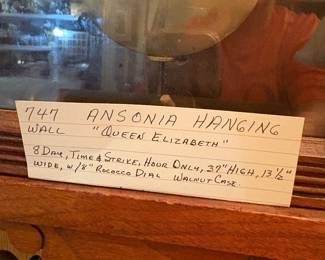 747 ANSONIA HANGING
WALL "QUEEN ELIZABETH"
8 DAY, TIME & STRIKE, HOUR ONLY, 37" HIGH, 13½"
WIDE, W/8" ROCOCCO DIAL WALNUT CASE.